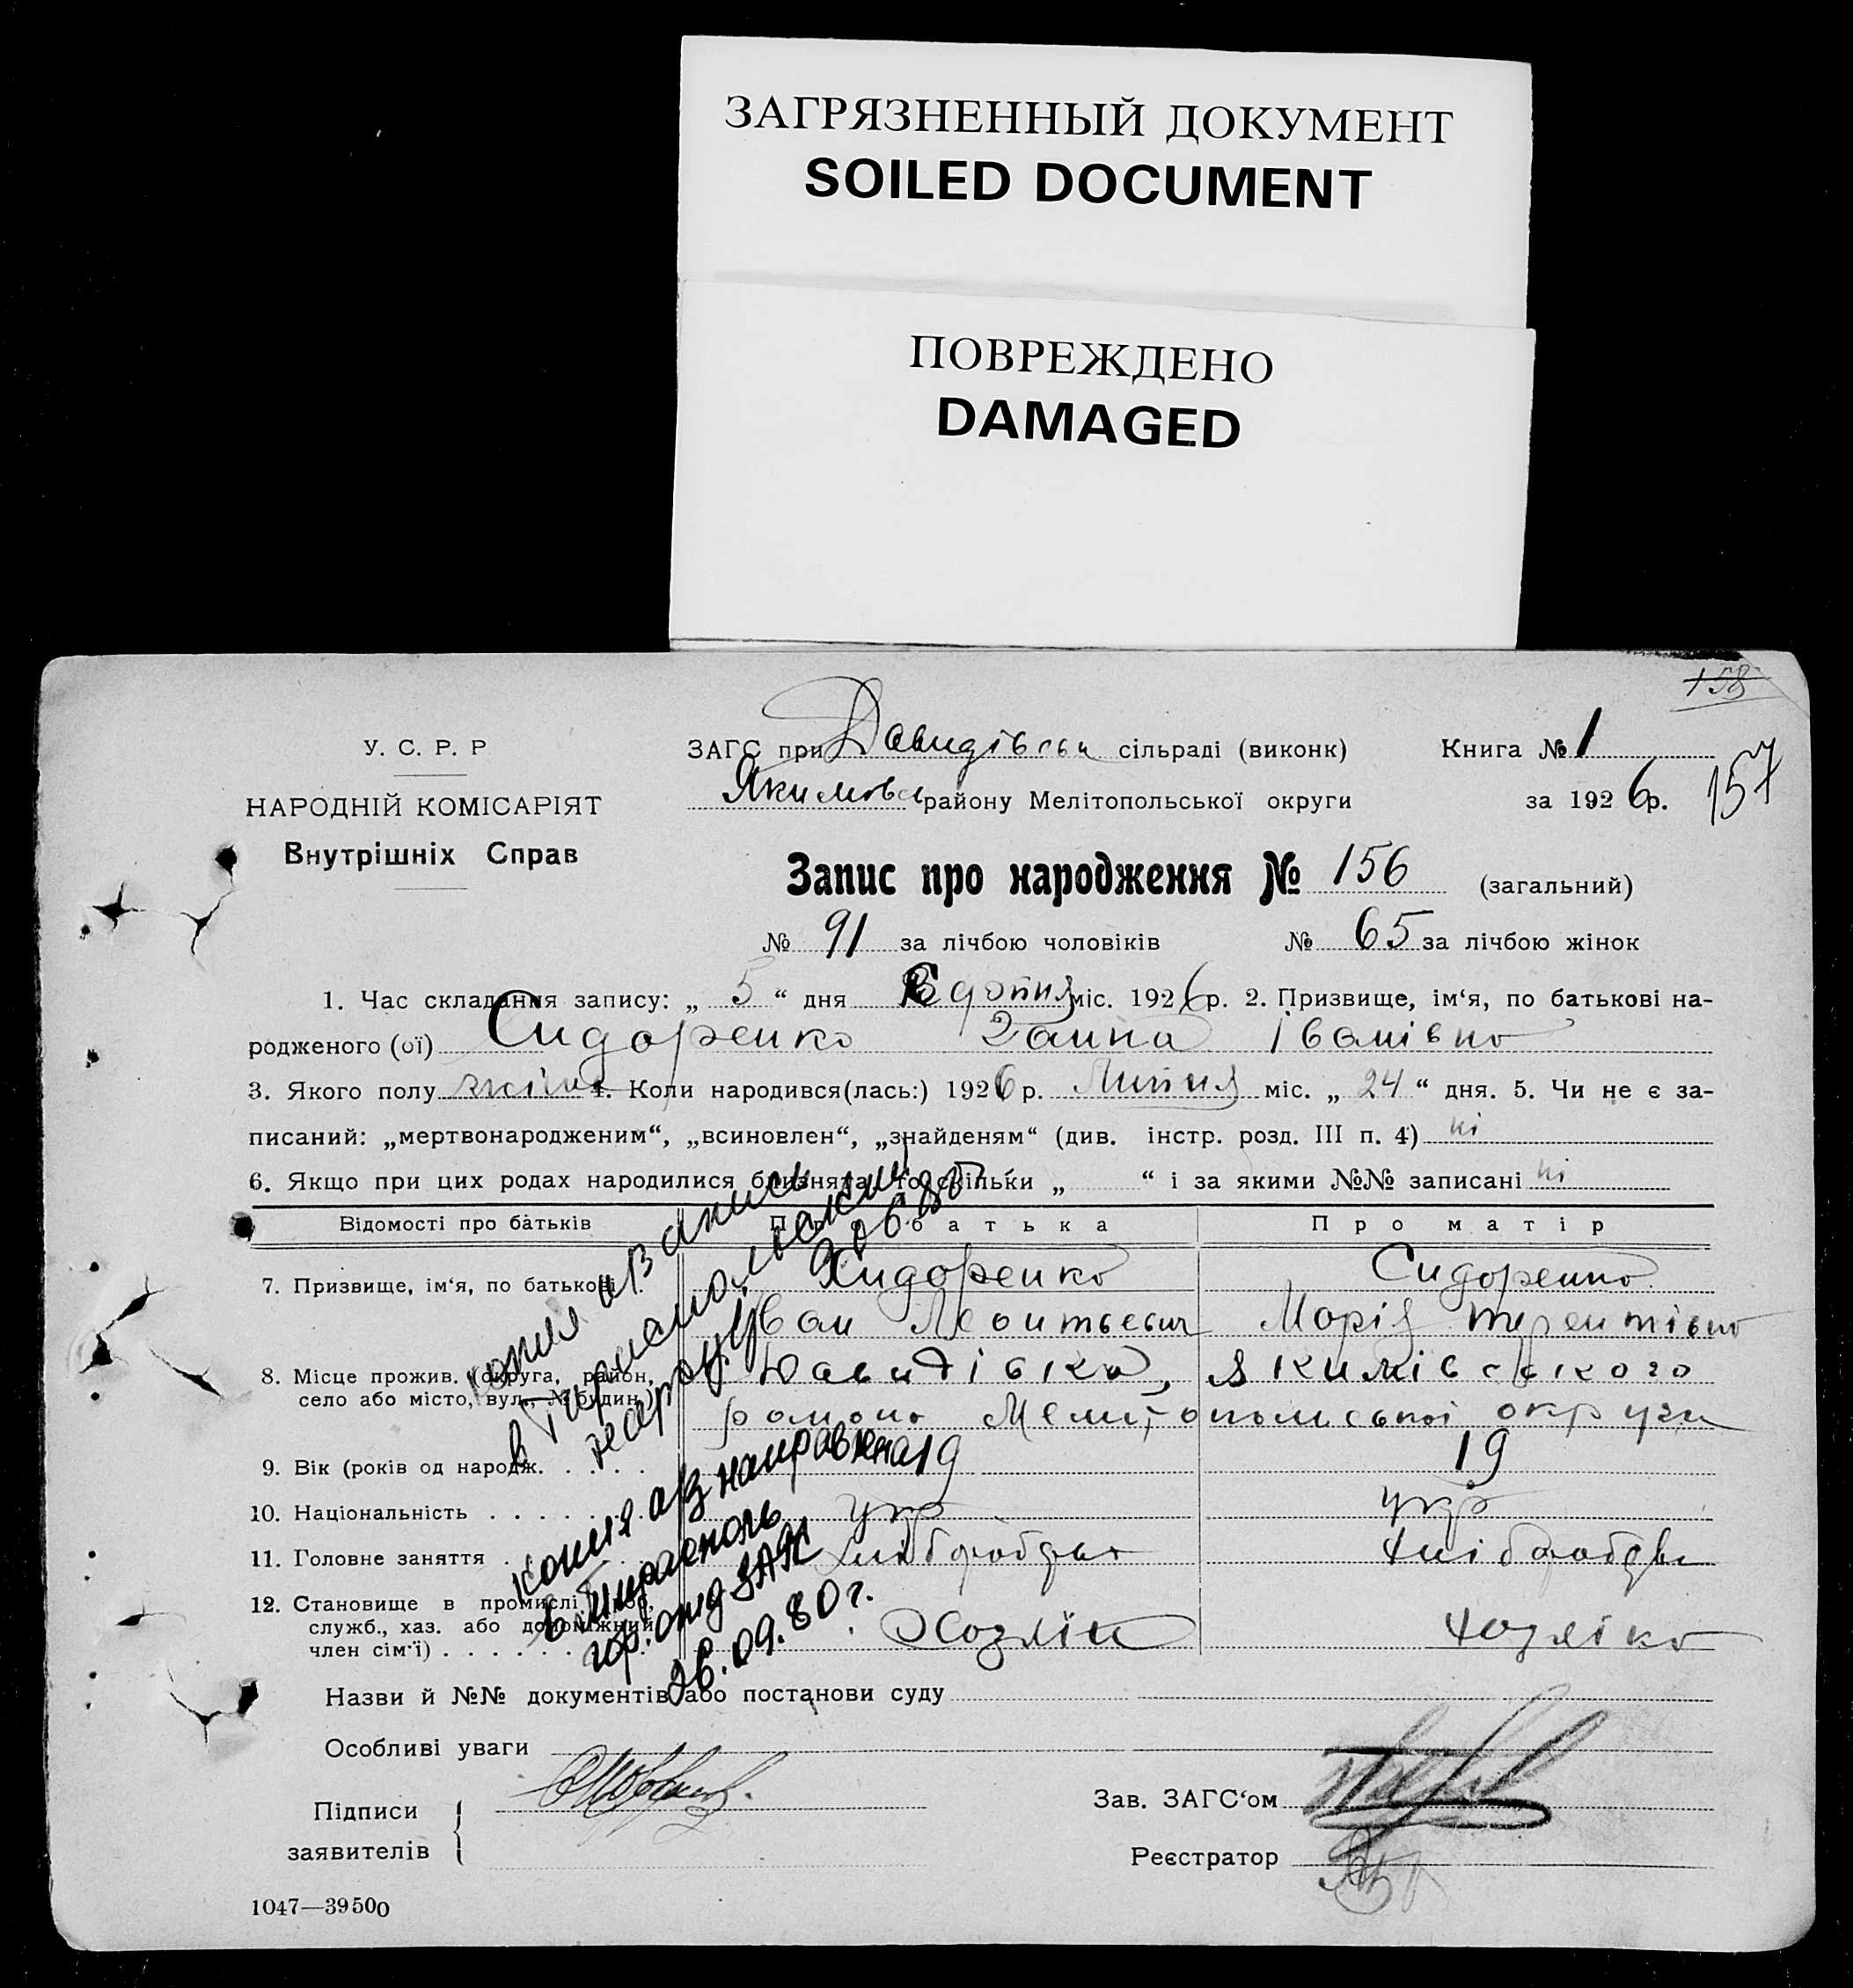 ЗАГРЯЗНЕННЫЙ ДОКУМЕНТ
SOILED DOCUMENT
ПОВРЕЖДЕНО
DAMAGED
158
У. С. Р. Р
НАРОДНІЙ КОМІСАРІЯТ
Внутрішніх Справ
ЗАГС при Давидівськ сільраді (виконк) Книга № 1
Якимовс району Мелітопольської округи за 1926 р. 157
Запис про народження № 156 (загальний)
№ 91 за лічбою чоловіків № 65 за лічбою жінок
1. Час складання запису: „ 5 “ дня міс. 1926 р. 2. Призвище, ім‘я, по батькові на-
родженого (ої) Сидоренко Ганна Іванівна
3. Якого полу жіноч 4. Коли народився(лась:) 1926 р. Липня міс. „ 24 “ дня. 5. Чи не є за-
писаний: „мертвонародженим“, „всиновлен“, „знайденям“ (див. інстр. розд. III п. 4) ні
6. Якщо при цих родах народилися близнята, то скільки „ “ і за якими №№ записані ні
Відомості про батьків Про батька Про матір
7. Призвище, ім‘я, по батькові Сидоренко Сидоренко
Іван Леонтьевич Марія Терентівна
8. Місце прожив. (округа, район, Давидівка, Якимівського
село або місто, вул., № будин.) району Мелітопольської округи
9. Вік (років од народж. 19 19
10. Національність укр укр
11. Головне заняття хліборобство хліборобство
12. Становище в промислі (роб,
служб., хаз. або допоміжний Хазяїн хазяйка
член сім‘ї)
копия а/з запись
в
копия а/з направлена
в Тирасполь
гор. отд ЗАГС
26.09.80 г.
Назви й №№ документів або постанови суду
Особливі уваги
Підписи
заявителів
Зав. ЗАГС‘ом
Реєстратор
1047—39500